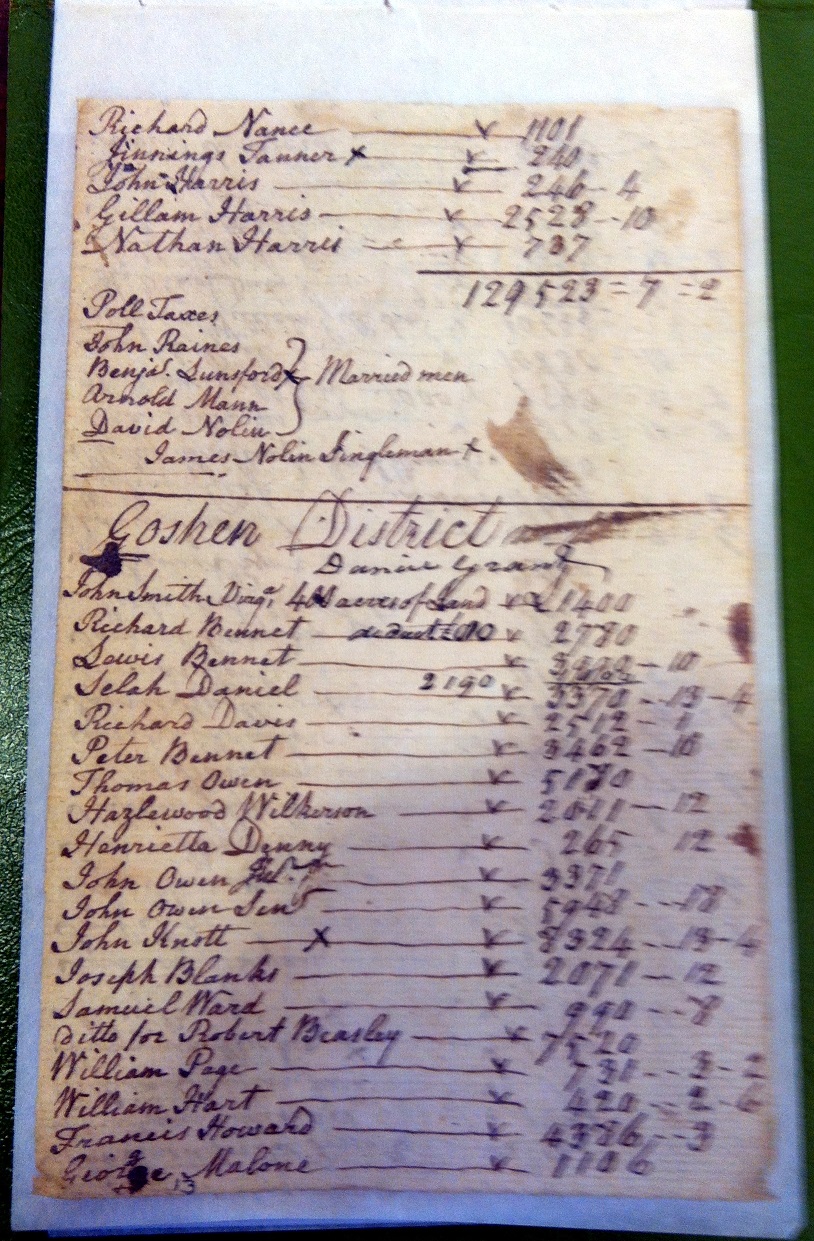 Richard Nance v 1101
Jinnings Tanner x v 240
John Harris v 246 - 4
Gillam Harris v 2528 - 10
Nathan Harris v 737
129523 = 7 = 2
Poll Taxes
John Raines
Benja. Lunsford x Married men
Arnold Mann
David Nolin
James Nolin Singleman x
Goshen District
Daniel Grant
John Smith Virga. acres of Land v £1400
Richard Bennet deduct v 2780
Lewis Bennet v - 10
Selah Daniel 2190 v 3370 - 13 - 4
Richard Davis v 2512 - 1
Peter Bennet v 3462 - 10
Thomas Owen v 5180
Hazlewood Wilkerson v 2011 - 12
Henrietta Denny v 265 12
John Owen v 3371
John Owen Senr v 5948 - 18
John Knott x v 8324 - 13 - 4
Joseph Blanks v 2071 - 12
Samuel Ward v 990 - 8
ditto for Robert Beasley v 7520
William Page v 731 - 3 - 2
William Hart v 420 - 2 - 6
Francis Howard v 4386 - 3
George Malone v 1106
13